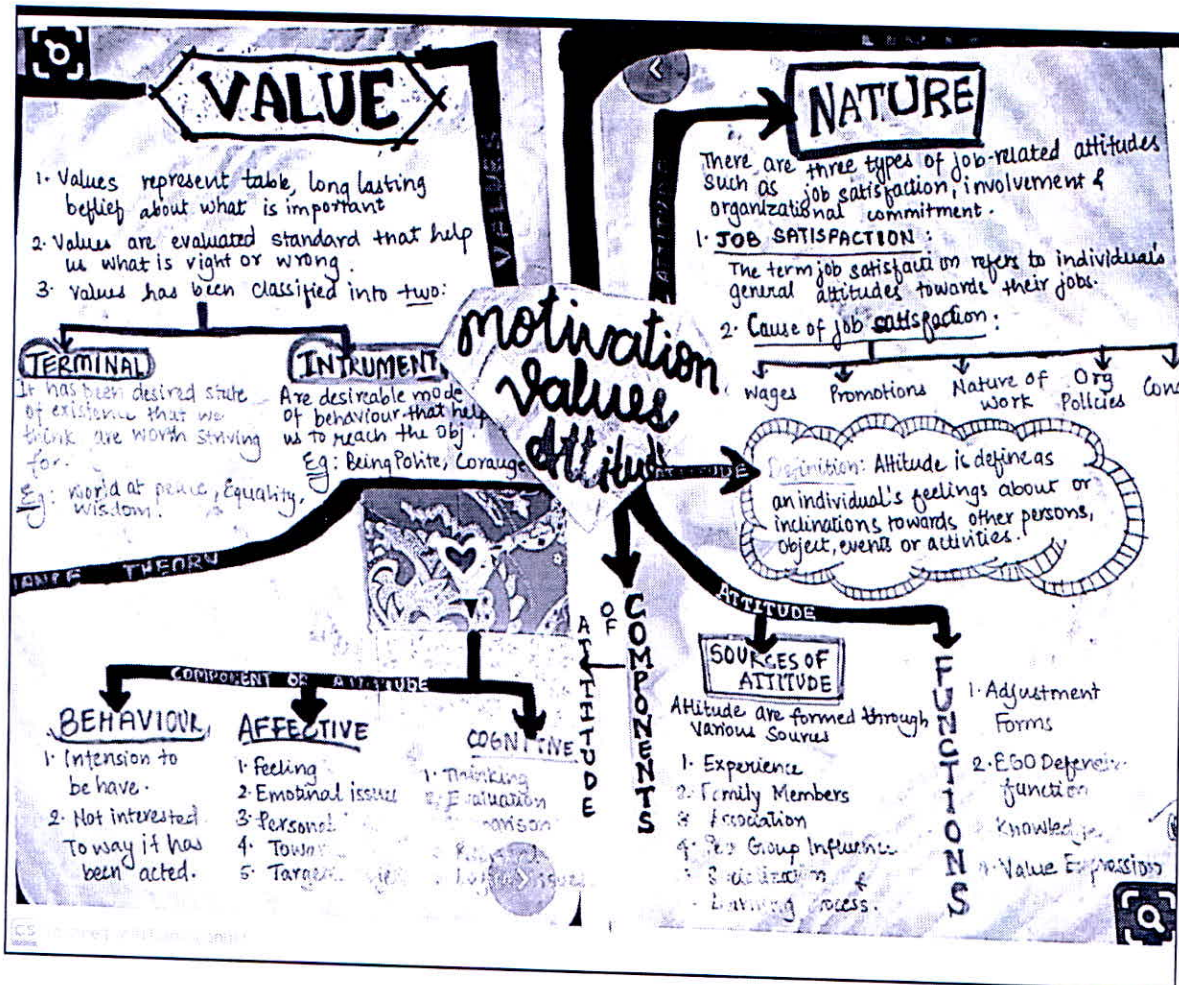 VALUE
1. Values represent table, long lasting
beflief about what is important
2. Values are evaluated standard that help
us what is right or wrong.
3. Values has been classified into two:
TERMINAL
It has been desired state
of existence that we
think are worth striving
for.
Eg: world at peace, Equality,
wisdom.
INTRUMENT
Are desireable mode
of behaviour that help
us to reach the Obj.
Eg: Being Polite, Corauge
VALUES
motivation
Values
Attitud
NATURE
There are three types of job-related attitudes
such as job satisfaction, involvement &
organizational commitment.
1. JOB SATISFACTION:
The term job satisfaction refers to individual's
general attitudes towards their jobs.
2. Cause of job satisfaction:
Wages
Promotions
Nature of
work
Org
Policies
Cons
Definition: Attitude is define as
an individual's feelings about or
inclinations towards other persons,
object, events or activities.
THEORY
COMPONENT OF ATTITUDE
BEHAVIOUR
1. Intension to
be have.
2. Not interested
To way it has
been acted.
AFFECTIVE
1. Feeling
2. Emotinal issues
3. Personal
4.
5.
COGNITIVE
1. Thinking
2. Evaluation
COMPONENTS
OF
ATTITUDE
ATTITUDE
SOURCES OF
ATTITUDE
Attitude are formed through
Various Sources
1. Experience
2. Family Members
3. Association
4. Peer Group Influence
Socialization &
Learning Process.
FUNCTIONS
1. Adjustment
Forms
2. EGO Defensive
function
Knowledge
4. Value Expression
CS